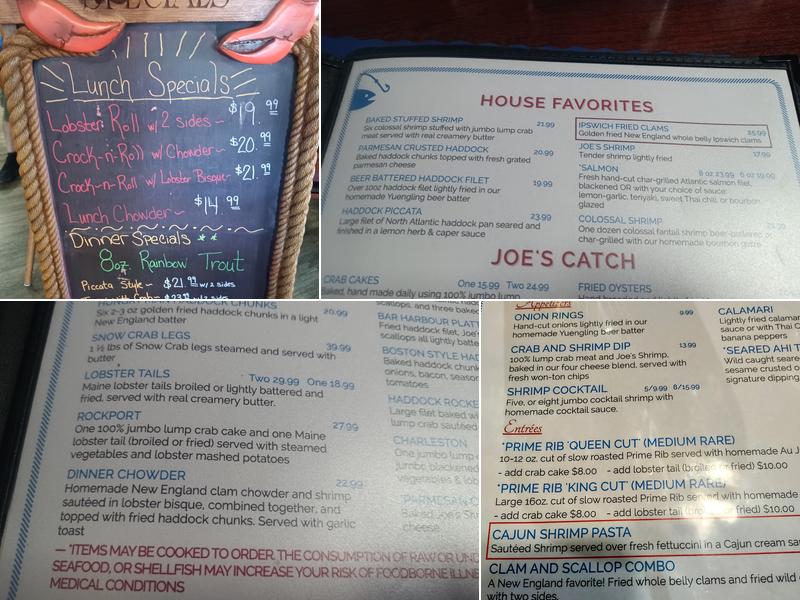 SPECIALS
Lunch Specials
Lobster Roll w/ 2 sides ~ $19.99
Crock-n-Roll w/ Chowder ~ $20.99
Crock-n-Roll w/ Lobster Bisque ~ $21.99
Lunch Chowder ~ $14.99
Dinner Specials
8oz. Rainbow Trout
Piccata Style ~ $21.99 w/ 2 sides
HOUSE FAVORITES
BAKED STUFFED SHRIMP 21.99
Six colossal shrimp stuffed with jumbo lump crab
meat served with real creamery butter
PARMESAN CRUSTED HADDOCK 20.99
Baked haddock chunks topped with fresh grated
parmesan cheese
BEER BATTERED HADDOCK FILET 19.99
Over 10oz haddock filet lightly fried in our
homemade Yuengling beer batter
HADDOCK PICCATA 23.99
Large filet of North Atlantic haddock pan seared and
finished in a lemon herb & caper sauce
IPSWICH FRIED CLAMS 25.99
Golden fried New England whole belly Ipswich clams
JOE'S SHRIMP 17.99
Tender shrimp lightly fried
*SALMON 8 oz 23.99 6 oz 19.99
Fresh hand-cut char-grilled Atlantic salmon filet,
blackened OR with your choice of sauce:
lemon-garlic, teriyaki, sweet Thai chili, or bourbon
glazed
COLOSSAL SHRIMP
One dozen colossal fantail shrimp beer-battered or
char-grilled with our homemade bourbon glaze
JOE'S CATCH
CRAB CAKES One 15.99 Two 24.99
Baked, hand made daily using 100% jumbo lump
FRIED OYSTERS
HADDOCK CHUNKS 20.99
Six 2-3 oz golden fried haddock chunks in a light
New England batter
SNOW CRAB LEGS 39.99
1 ½ lbs of Snow Crab legs steamed and served with
butter
LOBSTER TAILS Two 29.99 One 18.99
Maine lobster tails broiled or lightly battered and
fried, served with real creamery butter.
ROCKPORT 27.99
One 100% jumbo lump crab cake and one Maine
lobster tail (broiled or fried) served with steamed
vegetables and lobster mashed potatoes
DINNER CHOWDER 22.99
Homemade New England clam chowder and shrimp
sautéed in lobster bisque, combined together, and
topped with fried haddock chunks. Served with garlic
toast
scallops, and three baked
BAR HARBOUR
Fried haddock filet, Joe's
scallops all lightly
BOSTON STYLE
Baked haddock chunks
onions, bacon,
tomatoes.
HADDOCK
Large filet baked
lump crab
CHARLESTON
One jumbo lump
jumbo blackened
vegetables &
cheese
— *ITEMS MAY BE COOKED TO ORDER. THE CONSUMPTION OF RAW OR
SEAFOOD, OR SHELLFISH MAY INCREASE YOUR RISK OF FOODBORNE
MEDICAL CONDITIONS
Appetizers
ONION RINGS 9.99
Hand-cut onions lightly fried in our
homemade Yuengling beer batter
CRAB AND SHRIMP DIP 13.99
100% lump crab meat and Joe's Shrimp,
baked in our four cheese blend, served with
fresh won-ton chips
SHRIMP COCKTAIL 5/9.99 8/15.99
Five, or eight jumbo cocktail shrimp with
homemade cocktail sauce.
CALAMARI
Lightly fried
sauce or with Thai
banana peppers
*SEARED AHI
Wild caught
sesame crusted
signature dipping
Entrées
*PRIME RIB 'QUEEN CUT' (MEDIUM RARE)
10-12 oz. cut of slow roasted Prime Rib served with homemade Au
- add crab cake $8.00 - add lobster tail (broiled or fried) $10.00
*PRIME RIB 'KING CUT' (MEDIUM RARE)
Large 16oz. cut of slow roasted Prime Rib served with homemade
- add crab cake $8.00 - add lobster tail (broiled or fried) $10.00
CAJUN SHRIMP PASTA
Sautéed Shrimp served over fresh fettuccini in a Cajun cream
CLAM AND SCALLOP COMBO
A New England favorite! Fried whole belly clams and fried wild
with two sides.